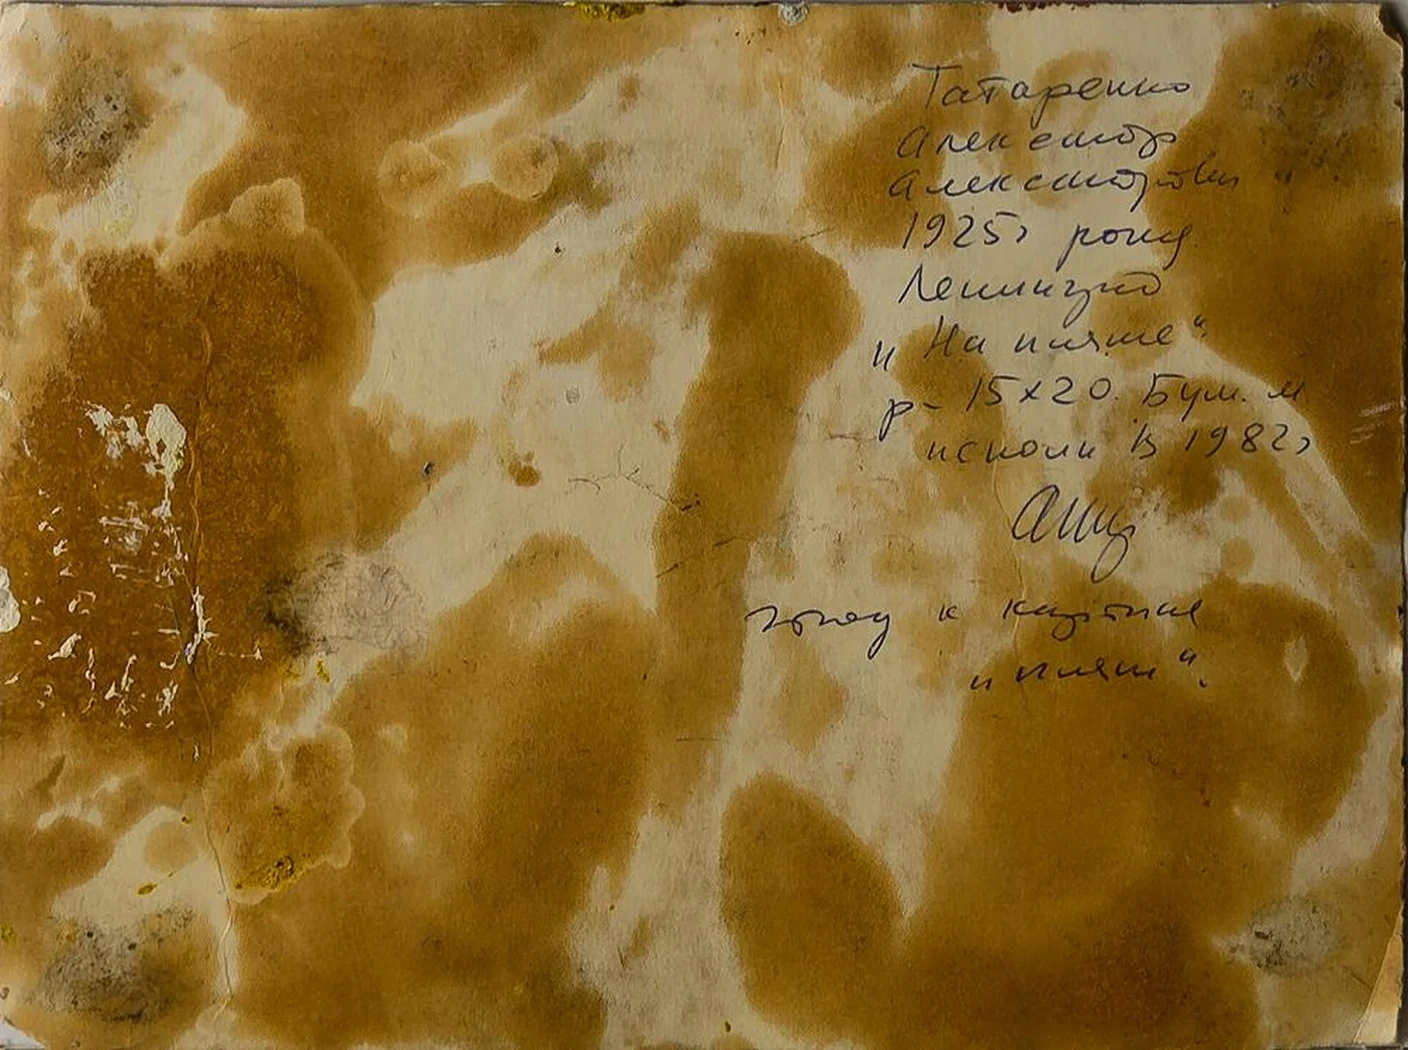 Татаренко
Александр
Александрович
1925г рожд
Ленинград
"На пляже"
р- 15х20. Бум. м
исполн в 1982г
этюд к картине
"пляж".